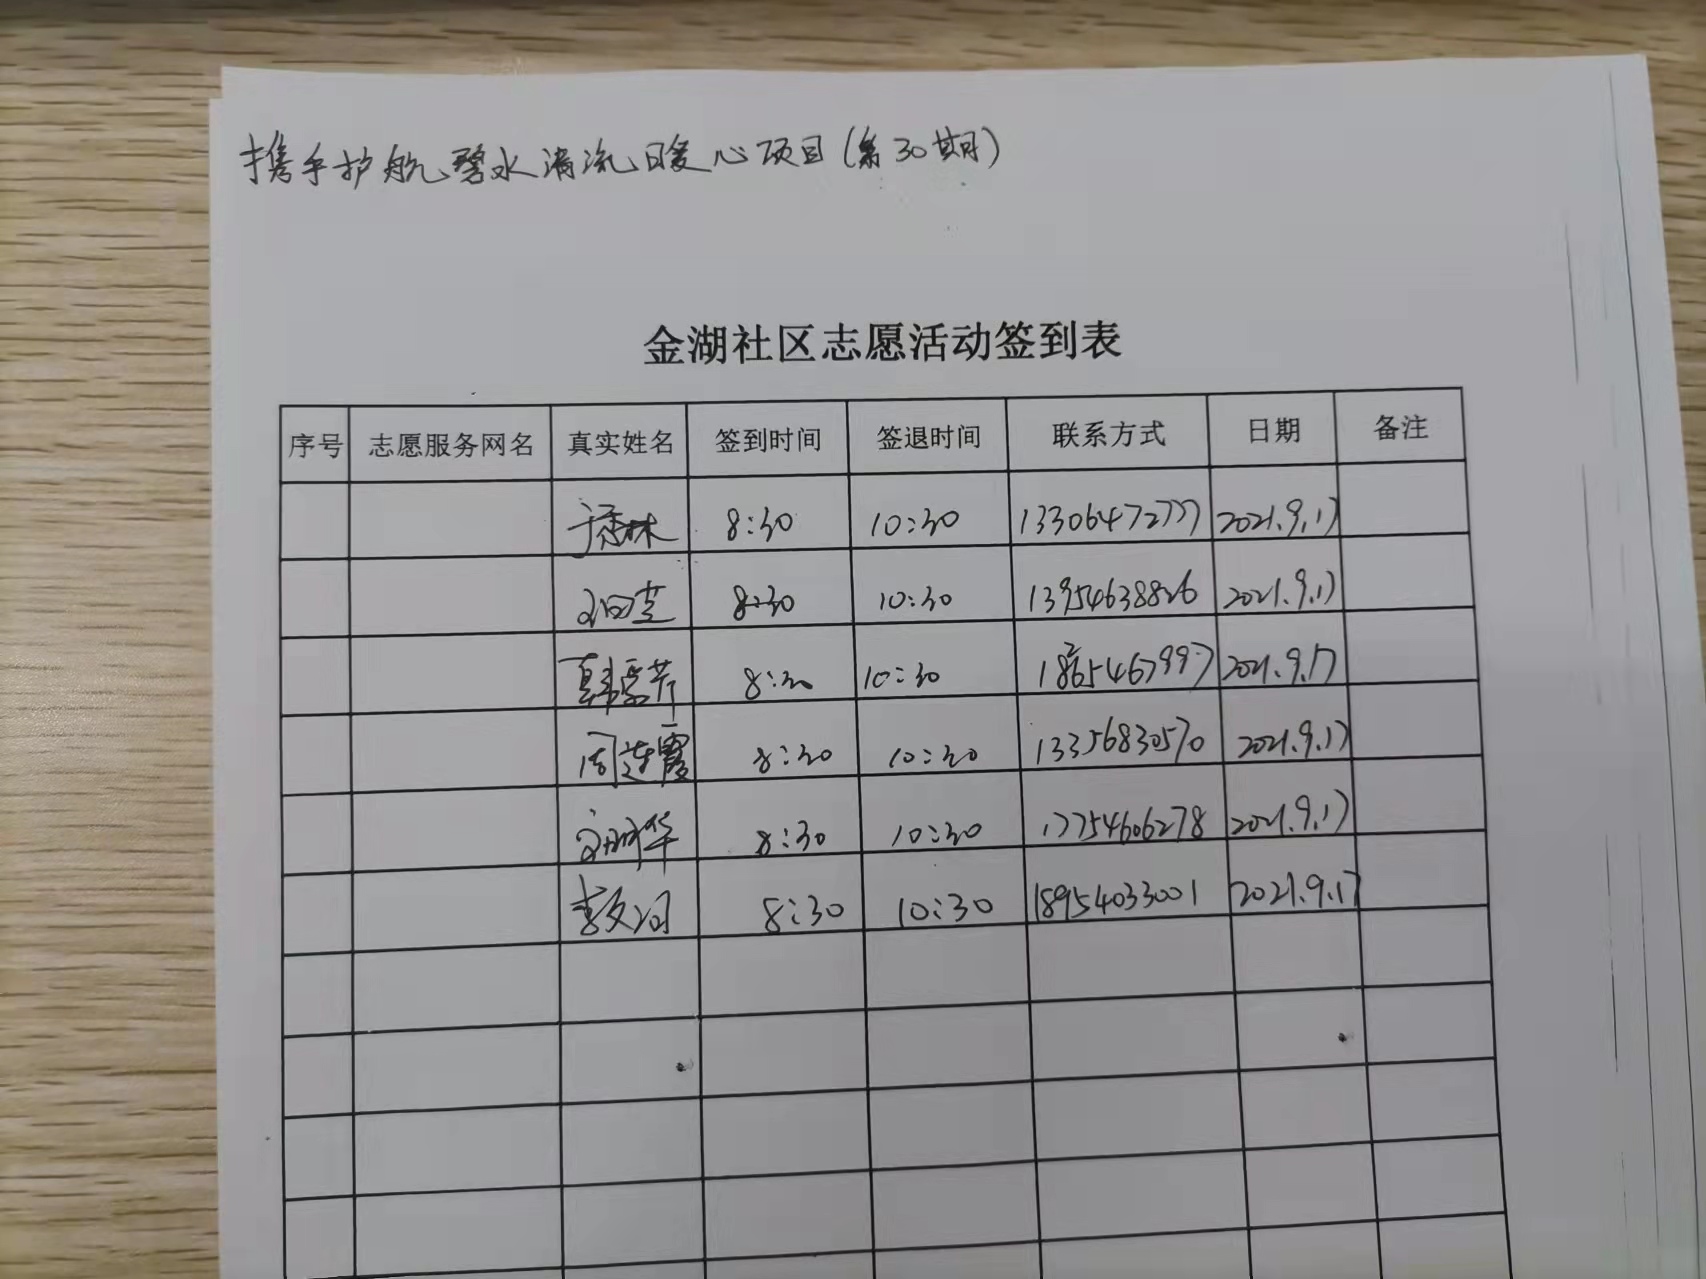 携手护航碧水清流暖心项目(第30期)
金湖社区志愿活动签到表
序号 志愿服务网名 真实姓名 签到时间 签退时间 联系方式 日期 备注
8:30 10:30 13306472777 2021.9.17
8:30 10:30 13954638826 2021.9.17
8:30 10:30 2021.9.17
周连霞 8:30 10:30 13356830570 2021.9.17
8:30 10:30 17754606278 2021.9.17
李文河 8:30 10:30 18954033001 2021.9.17